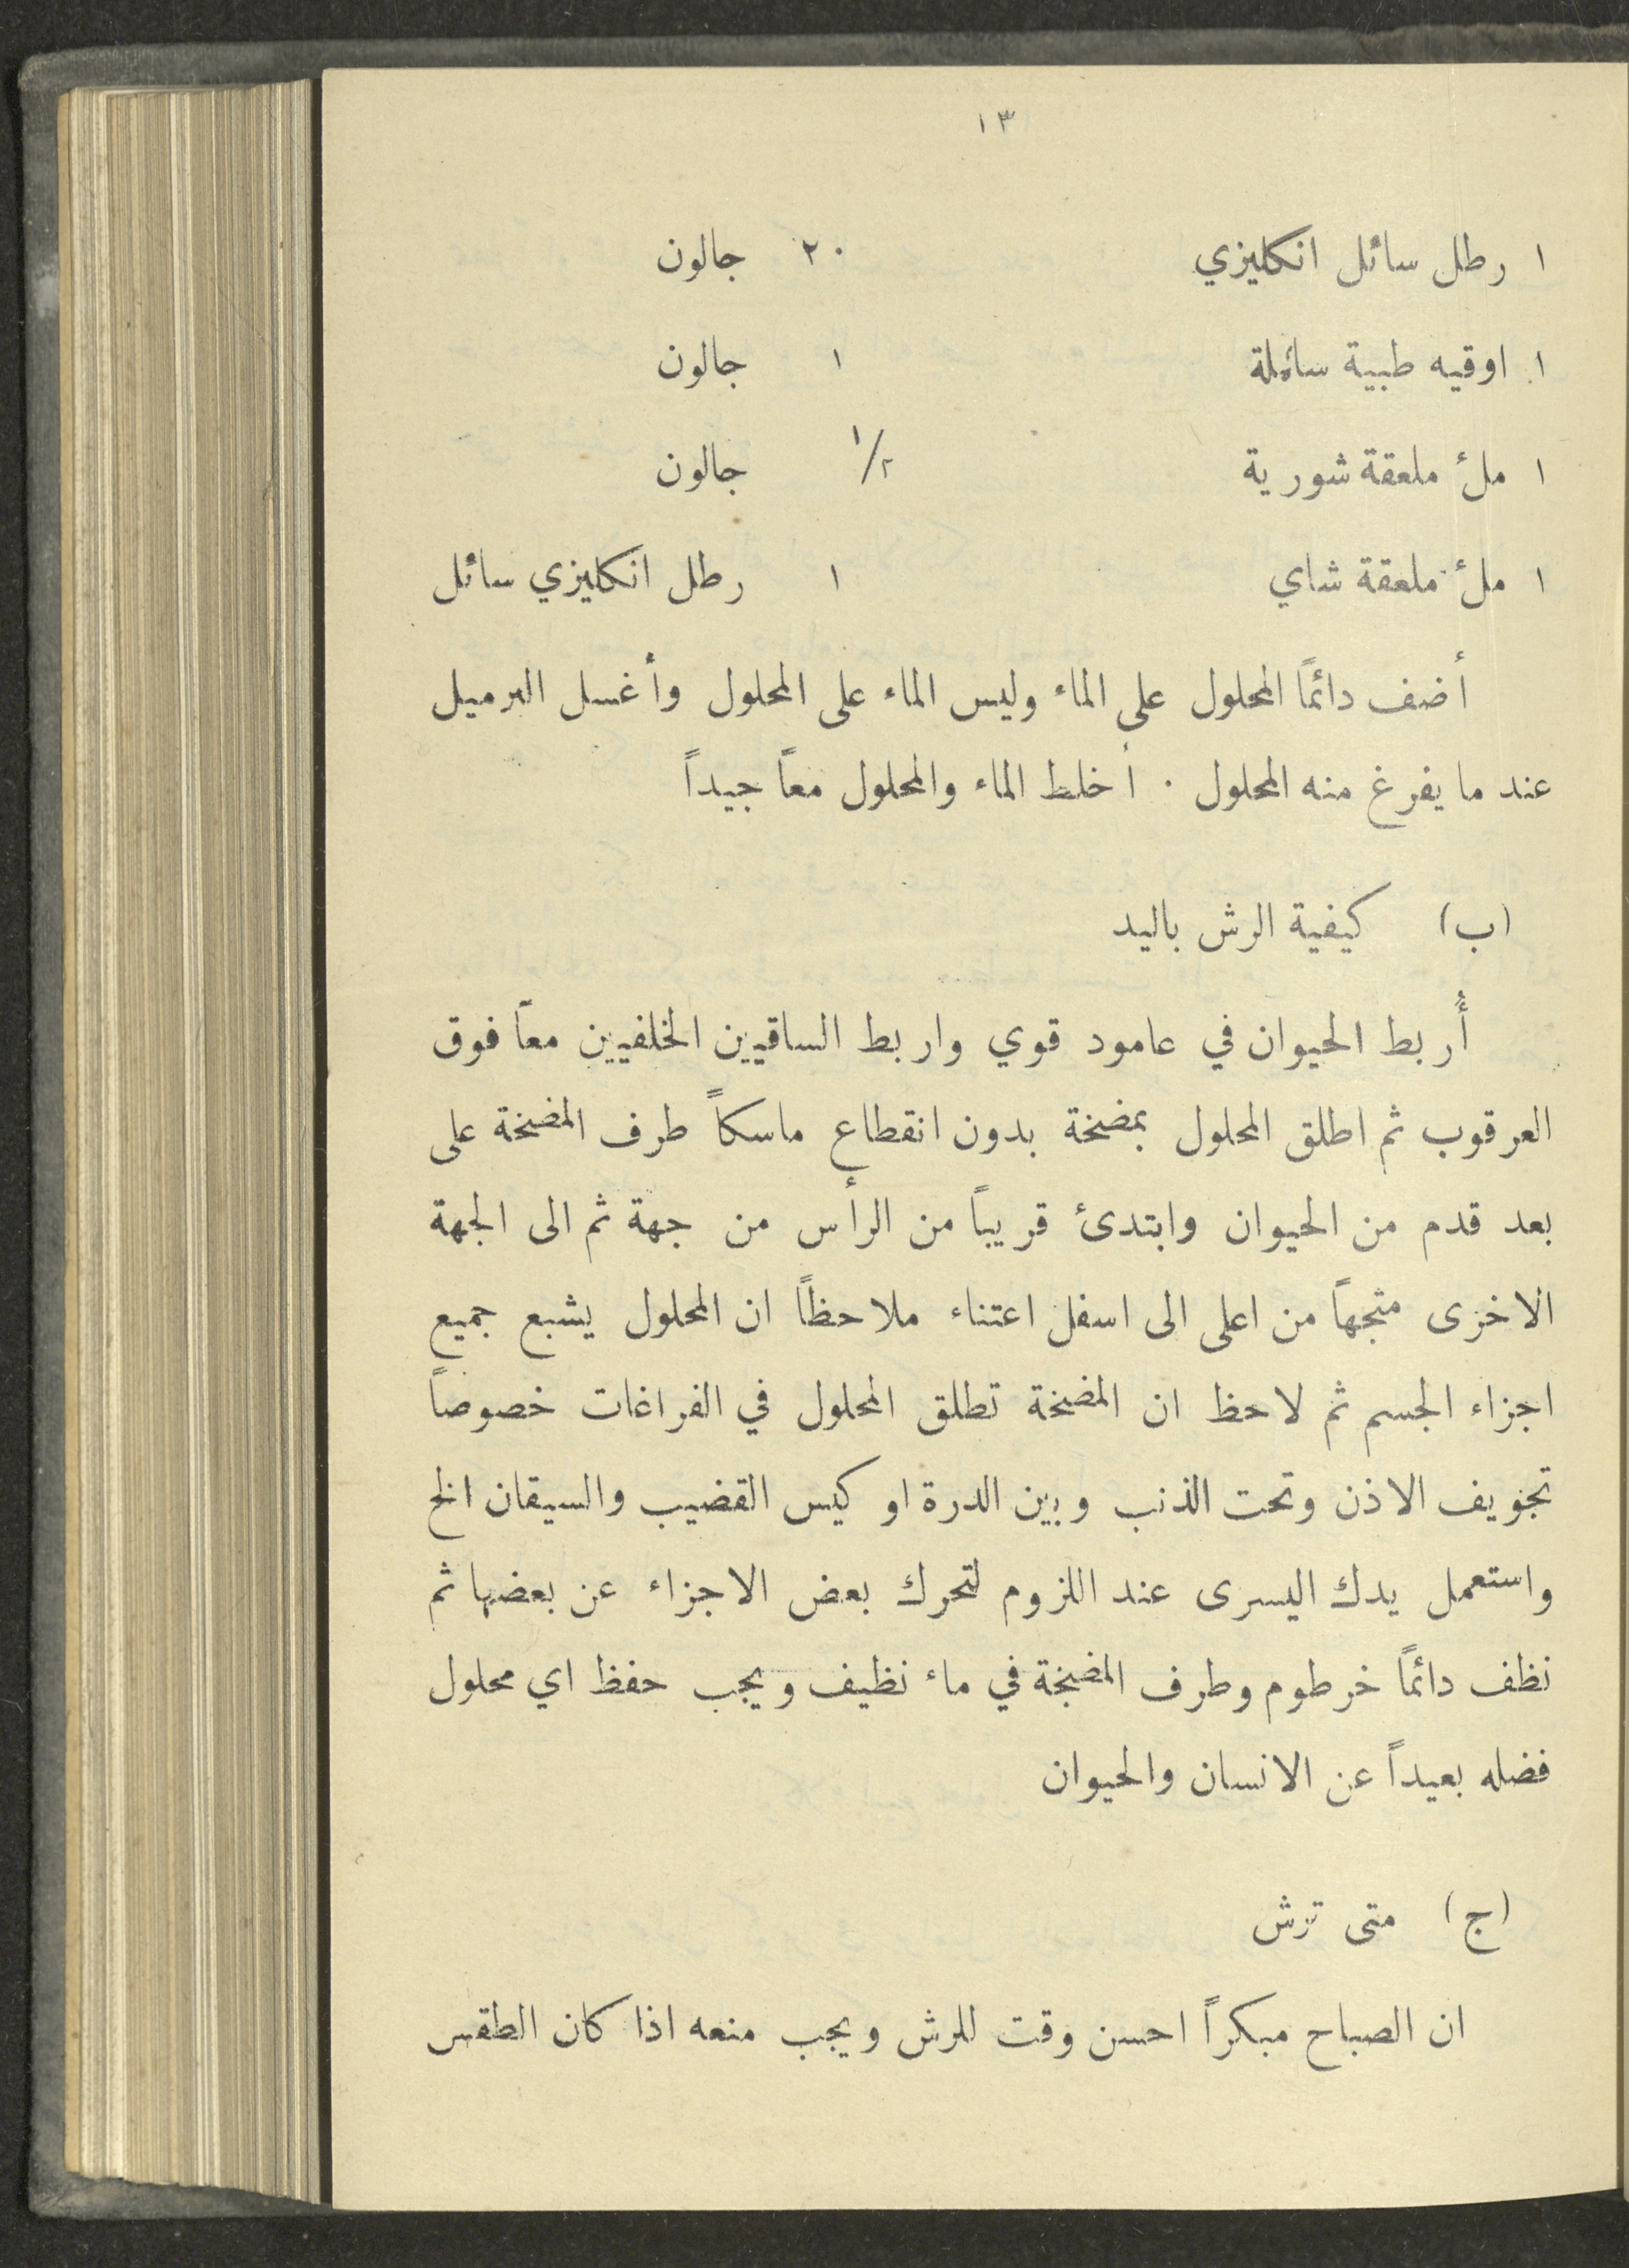 ١٣
١ رطل سائل انكليزي ٢٠ جالون
١ اوقيه طبية سائلة ١ جالون
١ ملئ ملعقة شورية ١/٢ جالون
١ ملئ ملعقة شاي ١ رطل انكليزي سائل
أضف دائماً المحلول على الماء وليس الماء على المحلول وأغسل البرميل
عند ما يفرغ منه المحلول ٠ أخلط الماء والمحلول معاً جيداً
(ب) كيفية الرش باليد
أُربط الحيوان في عامود قوي واربط الساقيين الخلفيين معاً فوق
العرقوب ثم اطلق المحلول بمضخة بدون انقطاع ماسكاً طرف المضخة على
بعد قدم من الحيوان وابتدئ قريباً من الرأس من جهة ثم الى الجهة
الاخرى متجهاً من اعلى الى اسفل اعتناء ملاحظاً ان المحلول يشبع جميع
اجزاء الجسم ثم لاحظ ان المضخة تطلق المحلول في الفراغات خصوصاً
تجويف الاذن وتحت الذنب وبين الدرة او كيس القضيب والسيقان الخ
واستعمل يدك اليسرى عند اللزوم لتحرك بعض الاجزاء عن بعضها ثم
نظف دائماً خرطوم وطرف المضخة في ماء نظيف ويجب حفظ اي محلول
فضله بعيداً عن الانسان والحيوان
(ج) متى ترش
ان الصباح مبكراً احسن وقت للرش ويجب منعه اذا كان الطقس